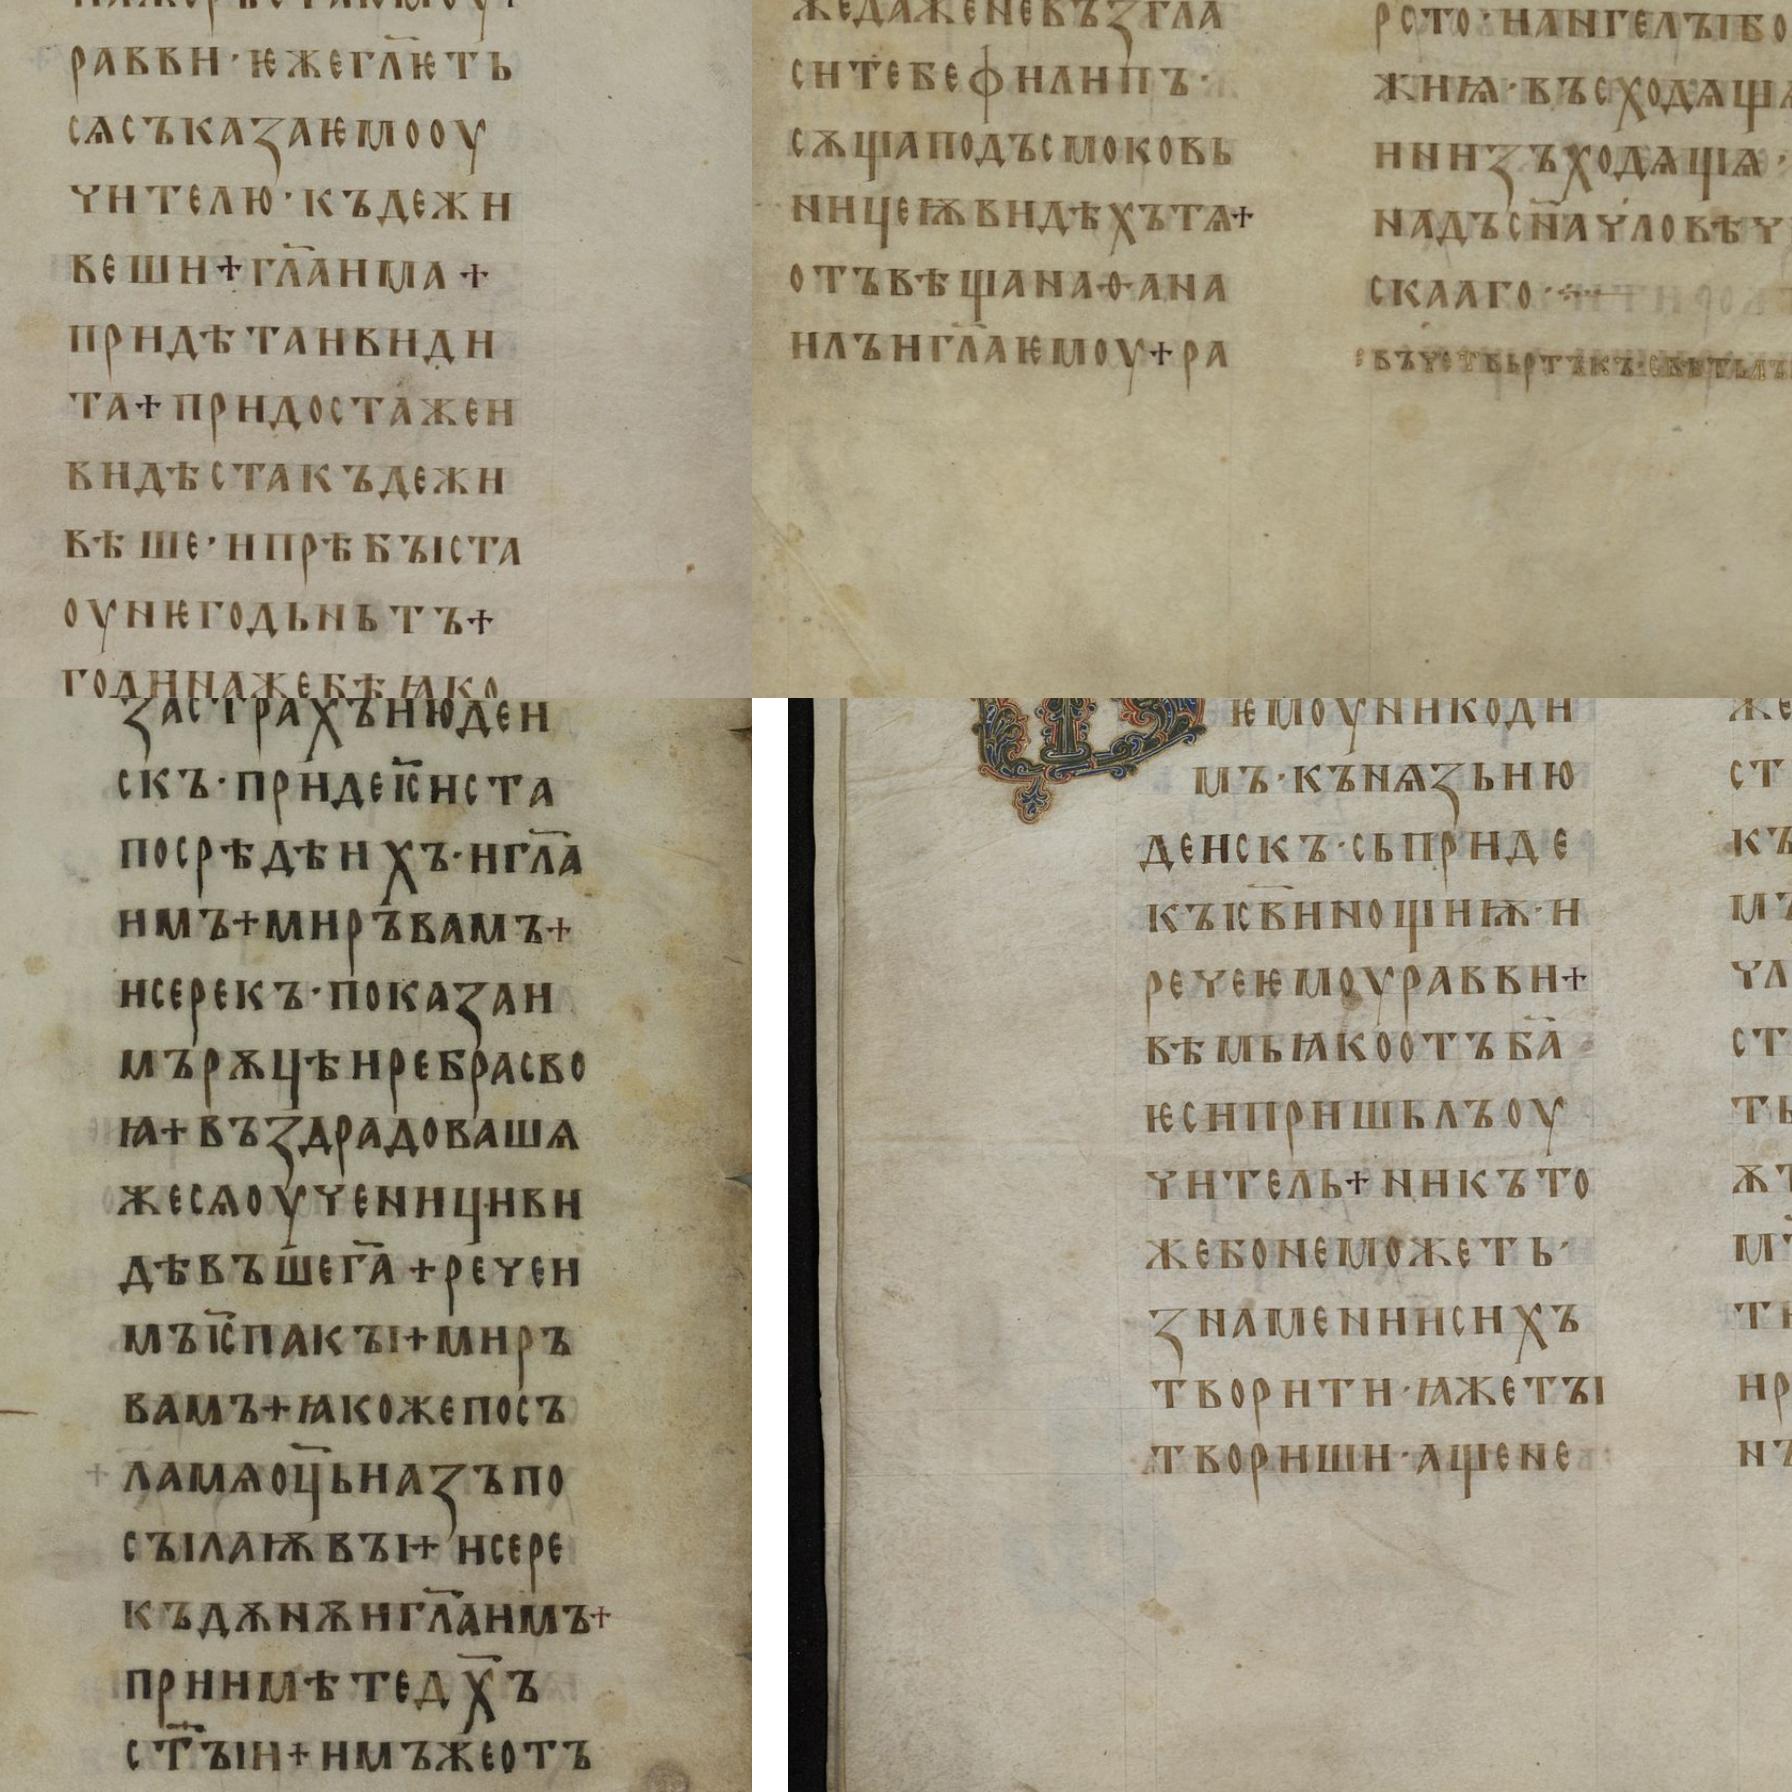 равви · ѥжегл҃ѥть
сѧсъказаѥмооу
чителю · къдежи
веши+гл҃аима+
придѣтаивиди
та+придостажеи
видѣстакъдежи
вѣше · ипрѣбꙑста
оунѥгодьньтъ+
годинажебѣꙗко
жедаженевъзгла
ситебефилипъ ·
сѫщаподъсмоковь
ницеѭвидѣхътѧ+
отъвѣщанаѳана
илъигл҃аѥмоу+ра
рсто · иангелꙑбо
жиѩ · въсходѧщѧ
инизъходѧщѧ ·
надъсн҃ачловѣч
скааго
въчетвьртъкъ · свѣтьлъ
застрахъиюдеи
скъ · придеіс҃иста
посрѣдѣихъ · игл҃а
имъ+миръвамъ+
исерекъ · показаи
мърѫцѣиребрасво
ꙗ+въздрадовашѧ
жесѧоученициви
дѣвъшег҃а+речеи
мъіс҃пакꙑ+миръ
вамъ+ꙗкожепосъ
ламѧоц҃ьиазъпо
сꙑлаѭвꙑ+исере
къдѫнѫигл҃аимъ+
приимѣтед҃хъ
ст҃ꙑи+имъжеотъ
ѥмоуникоди
мъ · кънѧзьию
деискъ · сьприде
къіс҃виинощиѭ · и
речеѥмоуравви+
вѣмьꙗкоотъб҃а
ѥсипришьлъоу
читель+никъто
жебонеможеть ·
знамениисихъ
творити · ꙗжетꙑ
твориши · ащене
же
ст
къ
мъ
чл
ст
ть
ѫт
мъ
ти
ир
нъ